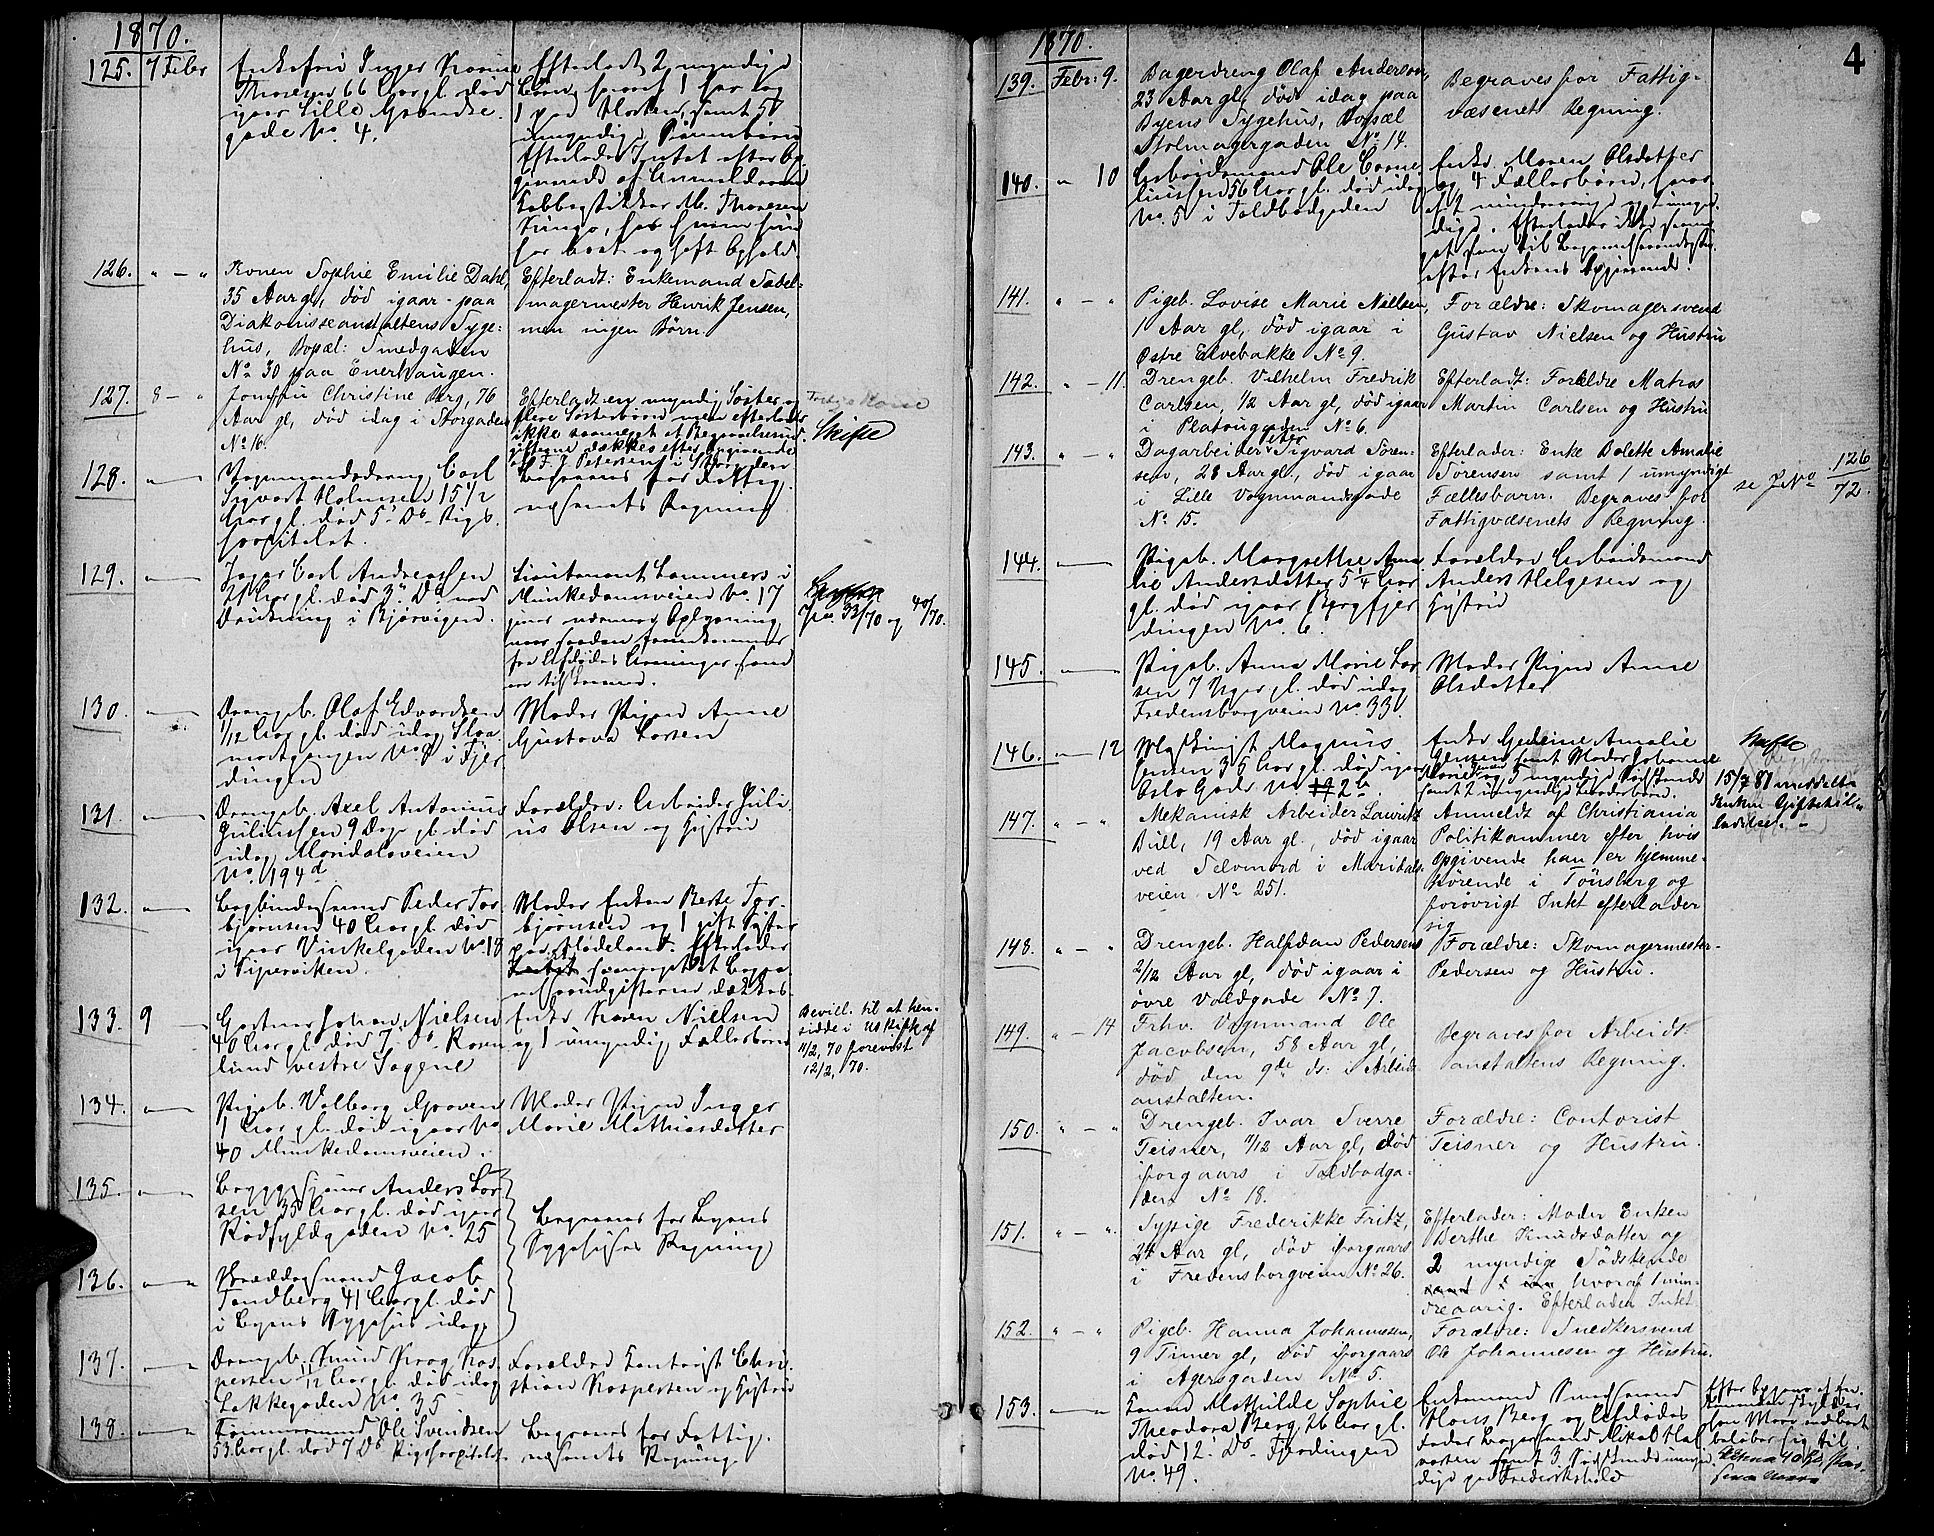 1870.
125. 7 Febr
Enkefru Inger
Thoresen 66 Aar gl. død
igaar Lille Grændse
gade No. 4.
Efterladt 2 myndige
Børn, hvoraf 1 her og
1 paa Horten, samt 5
umyndige Børnebørn
Efterlader Intet efter Op
givende af Anmelderen
Thoresen
126. " — "
Konen Sophie Emilie Dahl,
35 Aar gl, død igaar paa
Diakonisseanstaltens Syge-
hus, Bopæl: Smedgaden
No 30 paa Enerhaugen.
Efterladt: Enkemand Sadel-
magermester Henrik Jensen,
men ingen Børn.
127. 8 — "
Jomfru Christine Berg, 76
Aar gl, død idag i Storgaden
No 16.
Efterladt en myndig Søster og
flere Søsterbørn men efterlader
ikke saameget at Begravelsesud-
gifterne dækkes efter Opgivende
af F. J. Petersen i Storgaden
Skifte
128. —
Vognmandsdreng Carl
Sigvart Holmsen 15 1/2
Aar gl. død 5 Ds. Rigs
hospitalet.
Begraves for Fattig
væsenets Regning
129. —
Carl Andreassen
Aar gl. død 3 Ds ved
Drukning i Bjørvigen.
Lieutenant Lammers i
Munkedamsveien No. 17
giver nærmere Oplysning
naar saadan fremkommer
fra Afdødes
Jno. 33/70 og 40/70.
130. —
Drengeb. Olaf Edvardsen
1/12 Aar gl. død idag
i Fjer
dingen
Moder Pigen Anne
Gustava Larsen
131. —
Drengeb. Axel Antonius
Juliussen 9 Dage gl. død
idag Maridalsveien
No. 194d
Forældre: Arbeider Juli
us Olsen og Hustru
132. —
Bogbindersvend Peder Tor
bjørnsen 40 Aar gl. død
igaar Vinkelgaden No 18
i Pipervigen.
Moder Enken Berte Tor-
bjørnsen og 1 gift Søster
paa Hadeland. Efterlader
saameget at Begra
velsesudgifterne dækkes.
133. 9 —
Gartner Johan Nielsen
40 Aar gl. død 7 Ds. Rosen
lund vestre Sagene
Enke Karen Nielsen
og 1 umyndig Fællesbarn
Bevill. til at hen-
sidde i uskifte af
11/2, 70 forevist
12/2, 70.
134. —
Pigeb. Valborg Gravens
1 Aar gl. død igaar No
40 Munkedamsveien.
Moder Pigen Inger
Marie Mathiasdatter
135. —
Anders Lar
sen 35 Aar gl. død igaar
Rødfyldgaden No. 25
Begraves for Byens
Sygehuses Regning
136. —
Skræddersvend Jacob
Tandberg 41 Aar gl. død
i Byens Sygehus idag.
137. —
Drengeb. Knud Krog Kas
persen 1/12 Aar gl. død idag
Lakkegaden No. 35
Forældre Kontorist Chri
stian Kaspersen og Hustru
138. —
Tømmermand Ole Svendsen
53 Aar gl. død 7 Ds Rigshospitalet.
Begraves for Fattig
væsenets Regning.
1870.
4
139. Febr: 9.
Bagerdreng Olaf Anderson,
23 Aar gl, død idag paa
Byens Sygehus, Bopæl
Stolmagergaden No 14.
Begraves for Fattig-
væsenets Regning.
140. " 10
Arbeidsmand Ole Corne
liussen 56 Aar gl. død idag
No. 5 i Toldbodgaden
Enke Maren Olsdatter
og 4 Fællesbørn, hvor
af 2 mindreaarige og umyn
dige. Efterlader ikke saame
get som til Begravelsesudgifter
efter Enkens Opgivende.
141. " — "
Pigeb. Lovise Marie Nielsen,
1 Aar gl, død igaar i
Østre Elvebakke No 9.
Forældre: Skomagersvend
Gustav Nielsen og Hustru
142. " — 11.
Drengeb. Vilhelm Fredrik
Carlsen, 1/2 Aar gl, død igaar
i Platougaden No 6.
Efterladt: Forældre Matros
Martin Carlsen og Hustru
143. " — "
Dagarbeider Peter Sigvard Søren-
sen, 28 Aar gl, død igaar
i Lille Vognmandsgade
No 15.
Efterlader: Enke Bolette Amalie
Sørensen samt 1 umyndigt
Fællesbarn. Begraves for
Fattigvæsenets Regning.
se JNo 126/72.
144. —
Pigeb. Margrethe Ama
lie Andersdatter 5 1/4 Aar
gl. død igaar Bergfjer
dingen No. 6.
Forældre Arbeidsmand
Anders Helgesen og
Hustru
145. —
Pigeb. Anna Marie Lar
sen 7 Uger gl. død idag
Fredensborgveien No. 33
Moder Pigen Anne
Olsdatter
146. — 12
Magnus
Jensen 35 Aar gl. død igaar
Oslo Gade No 2b.
Enke Gedeine Amalie
Jensen samt Moder Johanne
og 5 myndige Sødskende
samt 2 umyndige
Skifte
15/7 81 meddelte
Enken Giftetil-
ladelse. -
147. " — "
Mekanisk Arbeider Lauritz
Bull, 19 Aar gl., død igaar
ved Selvmord i Maridals
veien No 251.
Anmeldt af Christiania
Politikammer efter hvis
Opgivende han er hjemme-
hørende i Tönsberg og
forøvrigt Intet efterlader
sig
148. " — "
Drengeb. Halfdan Pedersen
2/12 Aar gl, død igaar i
øvre Voldgade No 7.
Forældre: Skomagermester
Pedersen og Hustru.
149. " — 14
Frhv. Vognmand Ole
Jacobsen, 58 Aar gl,
død den 9de ds. i Arbeids
anstalten.
Begraves for Arbeids-
anstaltens Regning.
150. " — "
Drengeb. Ivar Sverre
Teisner, 11/12 Aar gl, død
iforgaars i Toldbodga-
den No 18.
Forældre: Contorist
Teisner og Hustru.
151. " — "
Sypige Frederikke Fritz,
24 Aar gl, død iforgaars
i Fredensborgveien No 26.
Efterlader: Moder Enken
Berthe Knudsdatter og
2 myndige Sødskende
hvoraf 1 min-
dreaarig. Efterlader Intet
152. " — "
Pigeb. Hanna Johannesen,
9 Timer gl, død iforgaars
i Agersgaden No 5.
Forældre: Snedkersvend
Ole Johannesen og Hustru.
153. —
Konen Mathilde Sophie
Theodora Berg, 26 Aar gl.
død 12 Ds. Fjerdingen
No. 49.
Enkemand Smedsvend
Hans Berg og Afdødes
Fader Mikal Hal
vorsen samt 3 Sødskende umyn
dige paa Fredrikshald